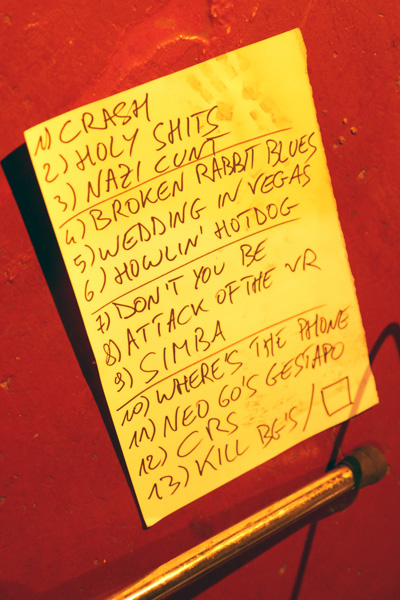 1) CRASH
2) HOLY SHITS
3) NAZI CUNT
4) BROKEN RABBIT BLUES
5) WEDDING IN VEGAS
6) HOWLIN' HOTDOG
7) DON'T YOU BE
8) ATTACK OF THE VR
9) SIMBA
10) WHERE'S THE PHONE
11) NEO GO'S GESTAPO
12) CRS
13) KILL BE'S /